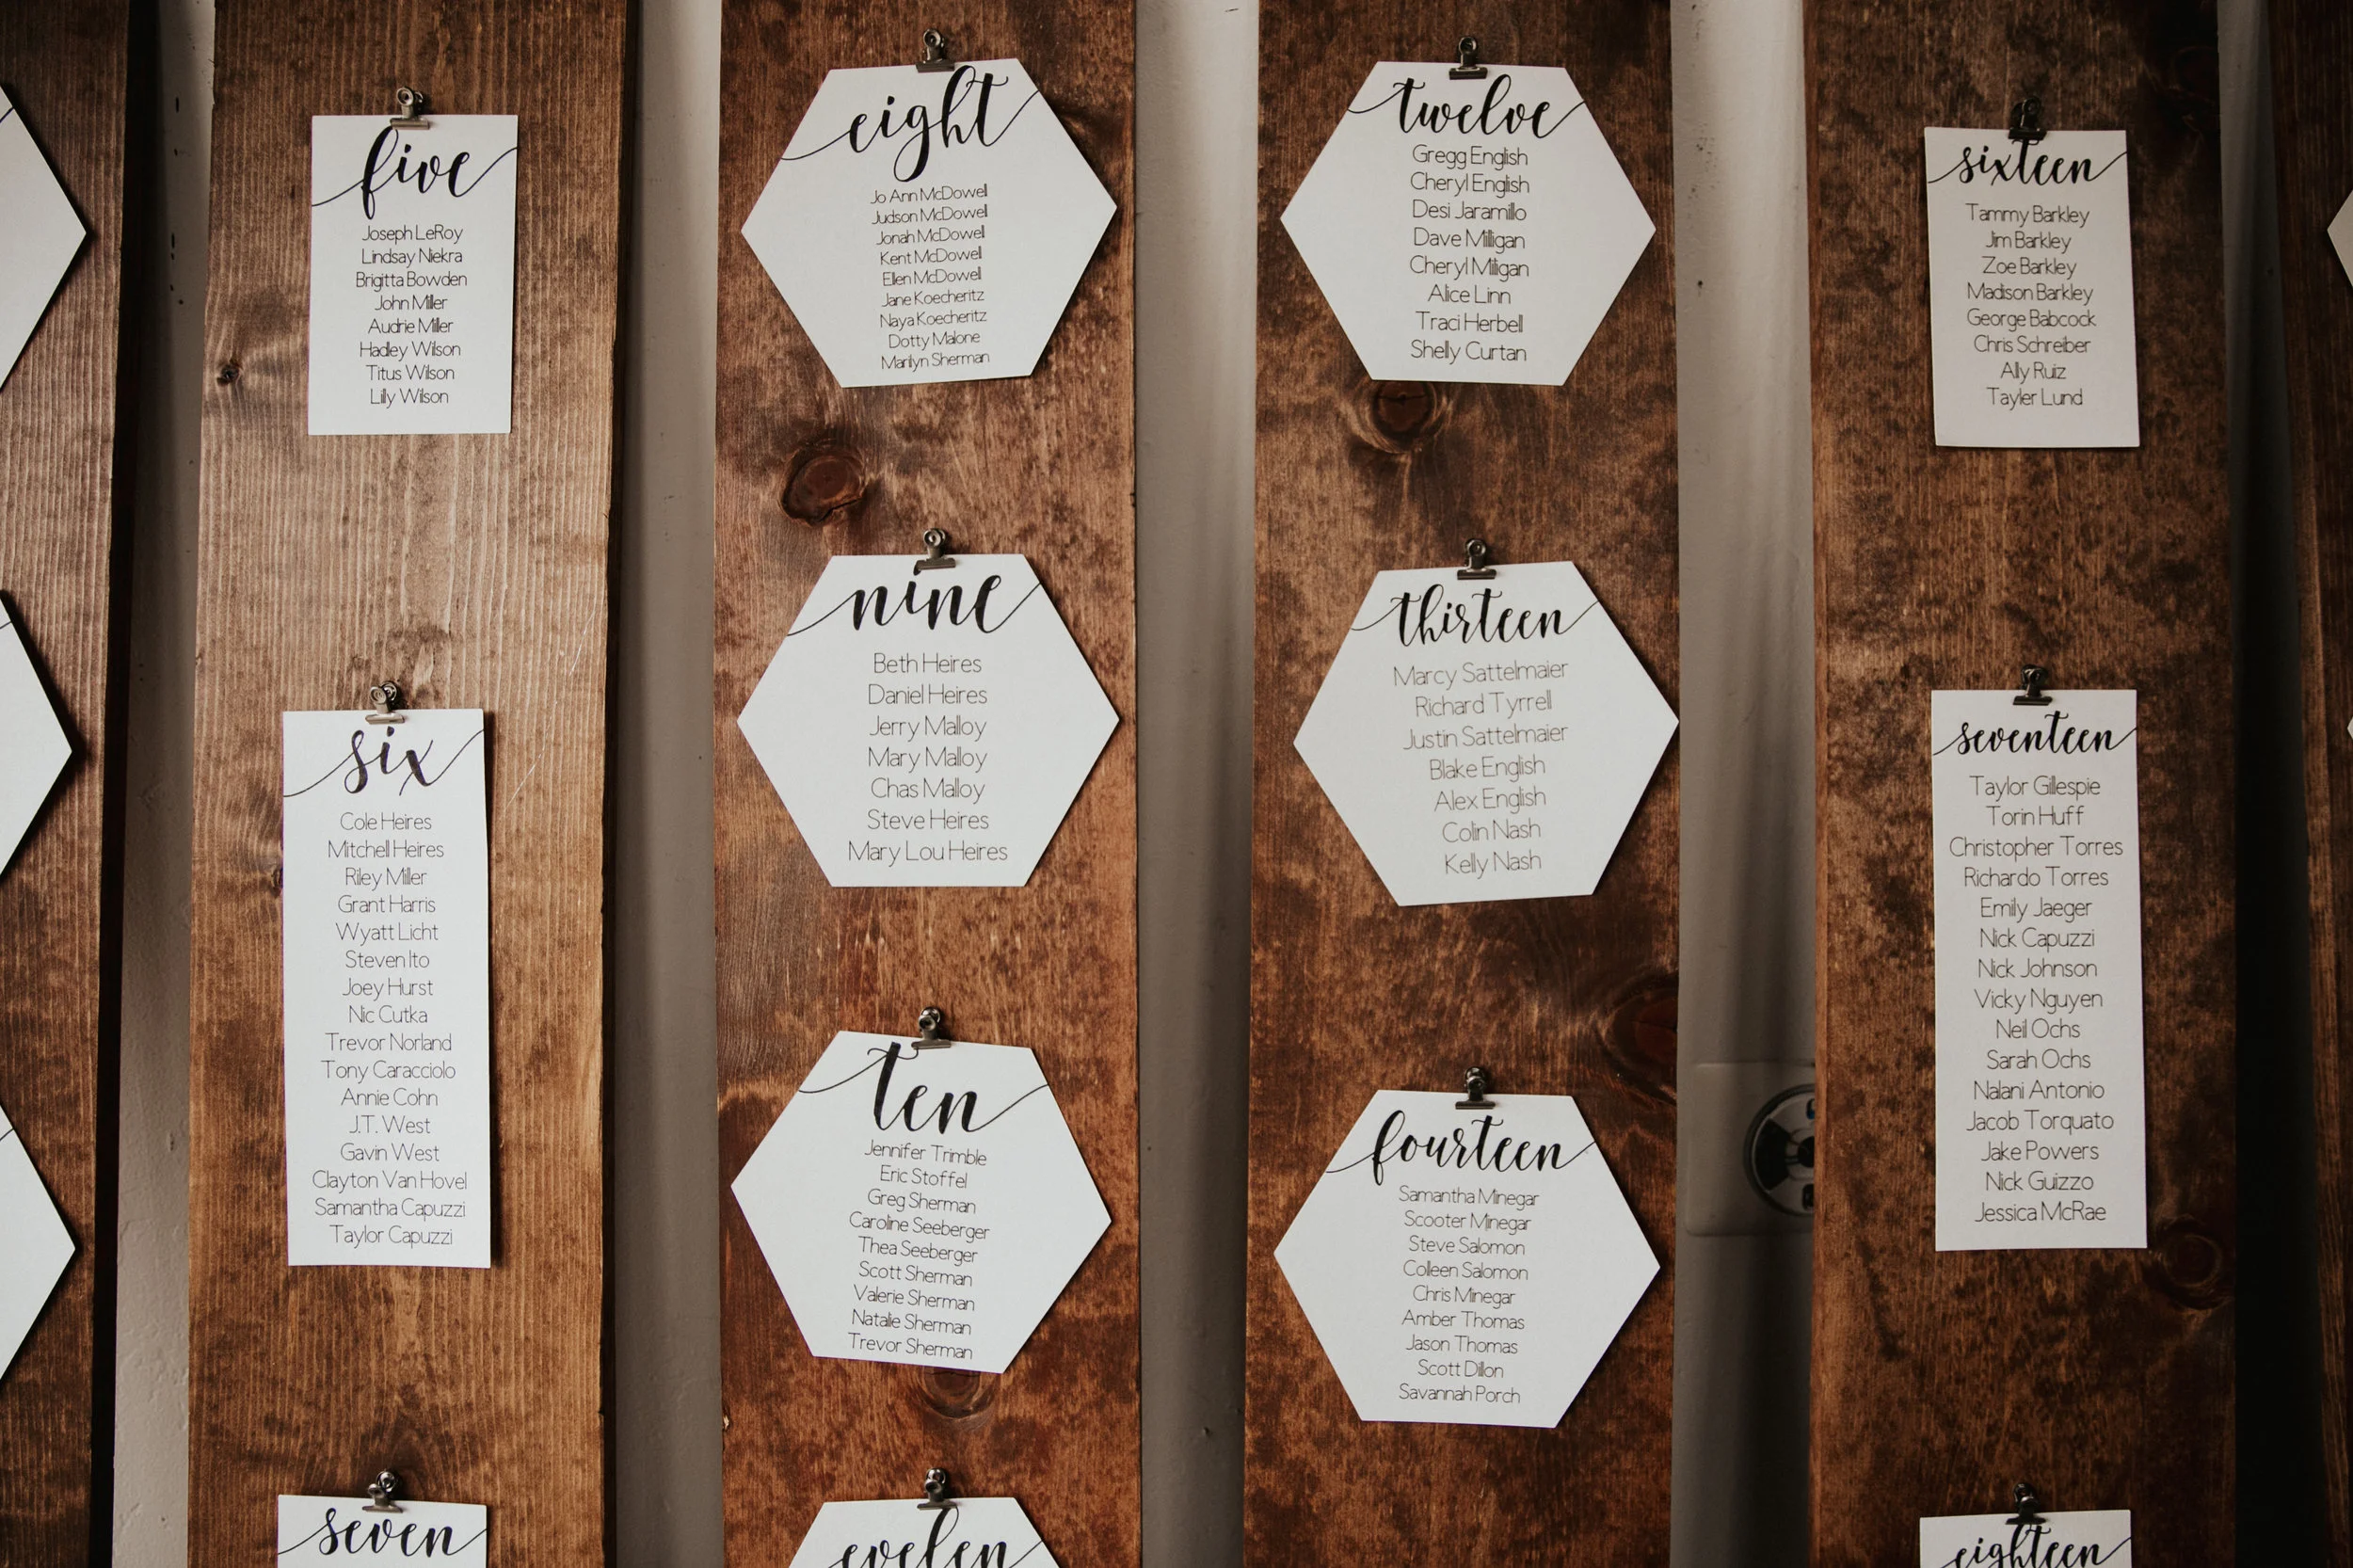 five
Joseph LeRoy
Lindsay Niekra
Brigitta Bowden
John Miller
Audrie Miller
Hadley Wilson
Titus Wilson
Lilly Wilson
six
Cole Heires
Mitchell Heires
Riley Miller
Grant Harris
Wyatt Licht
Steven Ito
Joey Hurst
Nic Cutka
Trevor Norland
Tony Caracciolo
Annie Cohn
J.T. West
Gavin West
Clayton Van Hovel
Samantha Capuzzi
Taylor Capuzzi
seven
eight
Jo Ann McDowell
Judson McDowell
Jonah McDowell
Kent McDowell
Ellen McDowell
Jane Koecheritz
Naya Koecheritz
Dotty Malone
Marilyn Sherman
nine
Beth Heires
Daniel Heires
Jerry Malloy
Mary Malloy
Chas Malloy
Steve Heires
Mary Lou Heires
ten
Jennifer Trimble
Eric Stoffel
Greg Sherman
Caroline Seeberger
Thea Seeberger
Scott Sherman
Valerie Sherman
Natalie Sherman
Trevor Sherman
evelen
twelve
Gregg English
Cheryl English
Desi Jaramillo
Dave Milligan
Cheryl Milligan
Alice Linn
Traci Herbell
Shelly Curtan
thirteen
Marcy Sattelmaier
Richard Tyrrell
Justin Sattelmaier
Blake English
Alex English
Colin Nash
Kelly Nash
fourteen
Samantha Minegar
Scooter Minegar
Steve Salomon
Colleen Salomon
Chris Minegar
Amber Thomas
Jason Thomas
Scott Dillon
Savannah Porch
sixteen
Tammy Barkley
Jim Barkley
Zoe Barkley
Madison Barkley
George Babcock
Chris Schreiber
Ally Ruiz
Tayler Lund
seventeen
Taylor Gillespie
Torin Huff
Christopher Torres
Richardo Torres
Emily Jaeger
Nick Capuzzi
Nick Johnson
Vicky Nguyen
Neil Ochs
Sarah Ochs
Nalani Antonio
Jacob Torquato
Jake Powers
Nick Guizzo
Jessica McRae
eighteen